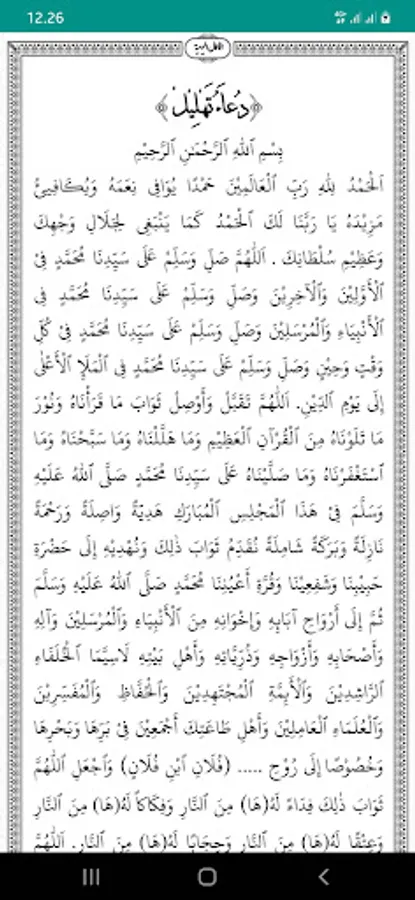 12.26
﴿دُعَاءُ تَهْلِيْلْ﴾
بِسْمِ ٱللهِ ٱلرَّحْمَٰنِ ٱلرَّحِيْمِ
ٱلْحَمْدُ لِلهِ رَبِّ ٱلْعَالَمِيْنَ حَمْدًا يُوَافِي نِعَمَهُ وَيُكَافِيئُ
مَزِيْدَهُ يَا رَبَّنَا لَكَ ٱلْحَمْدُ كَمَا يَنْبَغِي لِجَلَالِ وَجْهِكَ
وَعَظِيْمِ سُلْطَانِكَ . ٱللّٰهُمَّ صَلِّ وَسَلِّمْ عَلَى سَيِّدِنَا مُحَمَّدٍ فِى
ٱلْأَوَّلِيْنَ وَٱلْآخِرِيْنَ وَصَلِّ وَسَلِّمْ عَلَى سَيِّدِنَا مُحَمَّدٍ فِى
ٱلْأَنْبِيَاءِ وَٱلْمُرْسَلِيْنَ وَصَلِّ وَسَلِّمْ عَلَى سَيِّدِنَا مُحَمَّدٍ فِى كُلِّ
وَقْتٍ وَحِيْنٍ وَصَلِّ وَسَلِّمْ عَلَى سَيِّدِنَا مُحَمَّدٍ فِى ٱلْمَلَإِ ٱلْأَعْلَى
إِلَى يَوْمِ ٱلدِّيْنِ. ٱللّٰهُمَّ تَقَبَّلْ وَأَوْصِلْ ثَوَابَ مَا قَرَأْنَاهُ وَنُوْرَ
مَا تَلَوْنَاهُ مِنَ ٱلْقُرْآنِ ٱلْعَظِيْمِ وَمَا هَلَّلْنَاهُ وَمَا سَبَّحْنَاهُ وَمَا
ٱسْتَغْفَرْنَاهُ وَمَا صَلَّيْنَاهُ عَلَى سَيِّدِنَا مُحَمَّدٍ صَلَّى ٱللهُ عَلَيْهِ
وَسَلَّمَ فِى هَذَا ٱلْمَجْلِسِ ٱلْمُبَارَكِ هَدِيَّةً وَاصِلَةً وَرَحْمَةً
نَازِلَةً وَبَرَكَةً شَامِلَةً نُقَدِّمُ ثَوَابَ ذَلِكَ وَنُهْدِيْهِ إِلَى حَضْرَةِ
حَبِيْبِنَا وَشَفِيْعِنَا وَقُرَّةِ أَعْيُنِنَا مُحَمَّدٍ صَلَّى ٱللهُ عَلَيْهِ وَسَلَّمَ
ثُمَّ إِلَى أَرْوَاحِ آبَايِهِ وَإِخْوَانِهِ مِنَ ٱلْأَنْبِيَاءِ وَٱلْمُرْسَلِيْنَ وَآلِهِ
وَأَصْحَابِهِ وَأَزْوَاجِهِ وَذُرِّيَّاتِهِ وَأَهْلِ بَيْتِهِ لَاسِيَّمَا ٱلْخُلَفَاءِ
ٱلرَّاشِدِيْنَ وَٱلْأَيِمَّةِ ٱلْمُجْتَهِدِيْنَ وَٱلْحُفَّاظِ وَٱلْمُفَسِّرِيْنَ
وَٱلْعُلَمَاءِ ٱلْعَامِلِيْنَ وَأَهْلِ طَاعَتِكَ أَجْمَعِيْنَ فِىْ بَرِّهَا وَبَحْرِهَا
وَخُصُوْصًا إِلَى رُوْحِ ..... (فُلَانِ ٱبْنِ فُلَانٍ) وَٱجْعَلِ ٱللّٰهُمَّ
ثَوَابَ ذَلِكَ فِدَاءً لَهُ(هَا) مِنَ ٱلنَّارِ وَفِكَاكاً لَهُ(هَا) مِنَ ٱلنَّارِ
وَعِتْقًا لَهُ(هَا) مِنَ ٱلنَّارِ وَحِجَابًا لَهُ(هَا) مِنَ ٱلنَّارِ. ٱللّٰهُمَّ